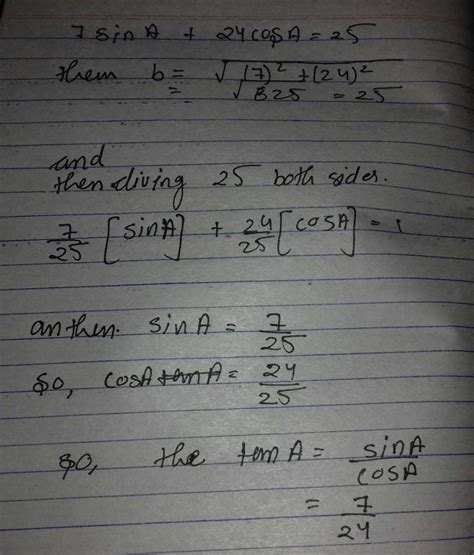 7 sin A + 24 cosA = 25
them b = √(7)² + (24)²
√825 = 25
and
then diving 25 both sides.
7/25 [sinA] + 24/25 [cosA] = 1
an then. sin A = 7/25
so, cosA tanA = 24/25
so, the tan A = sinA/cosA
= 7/24